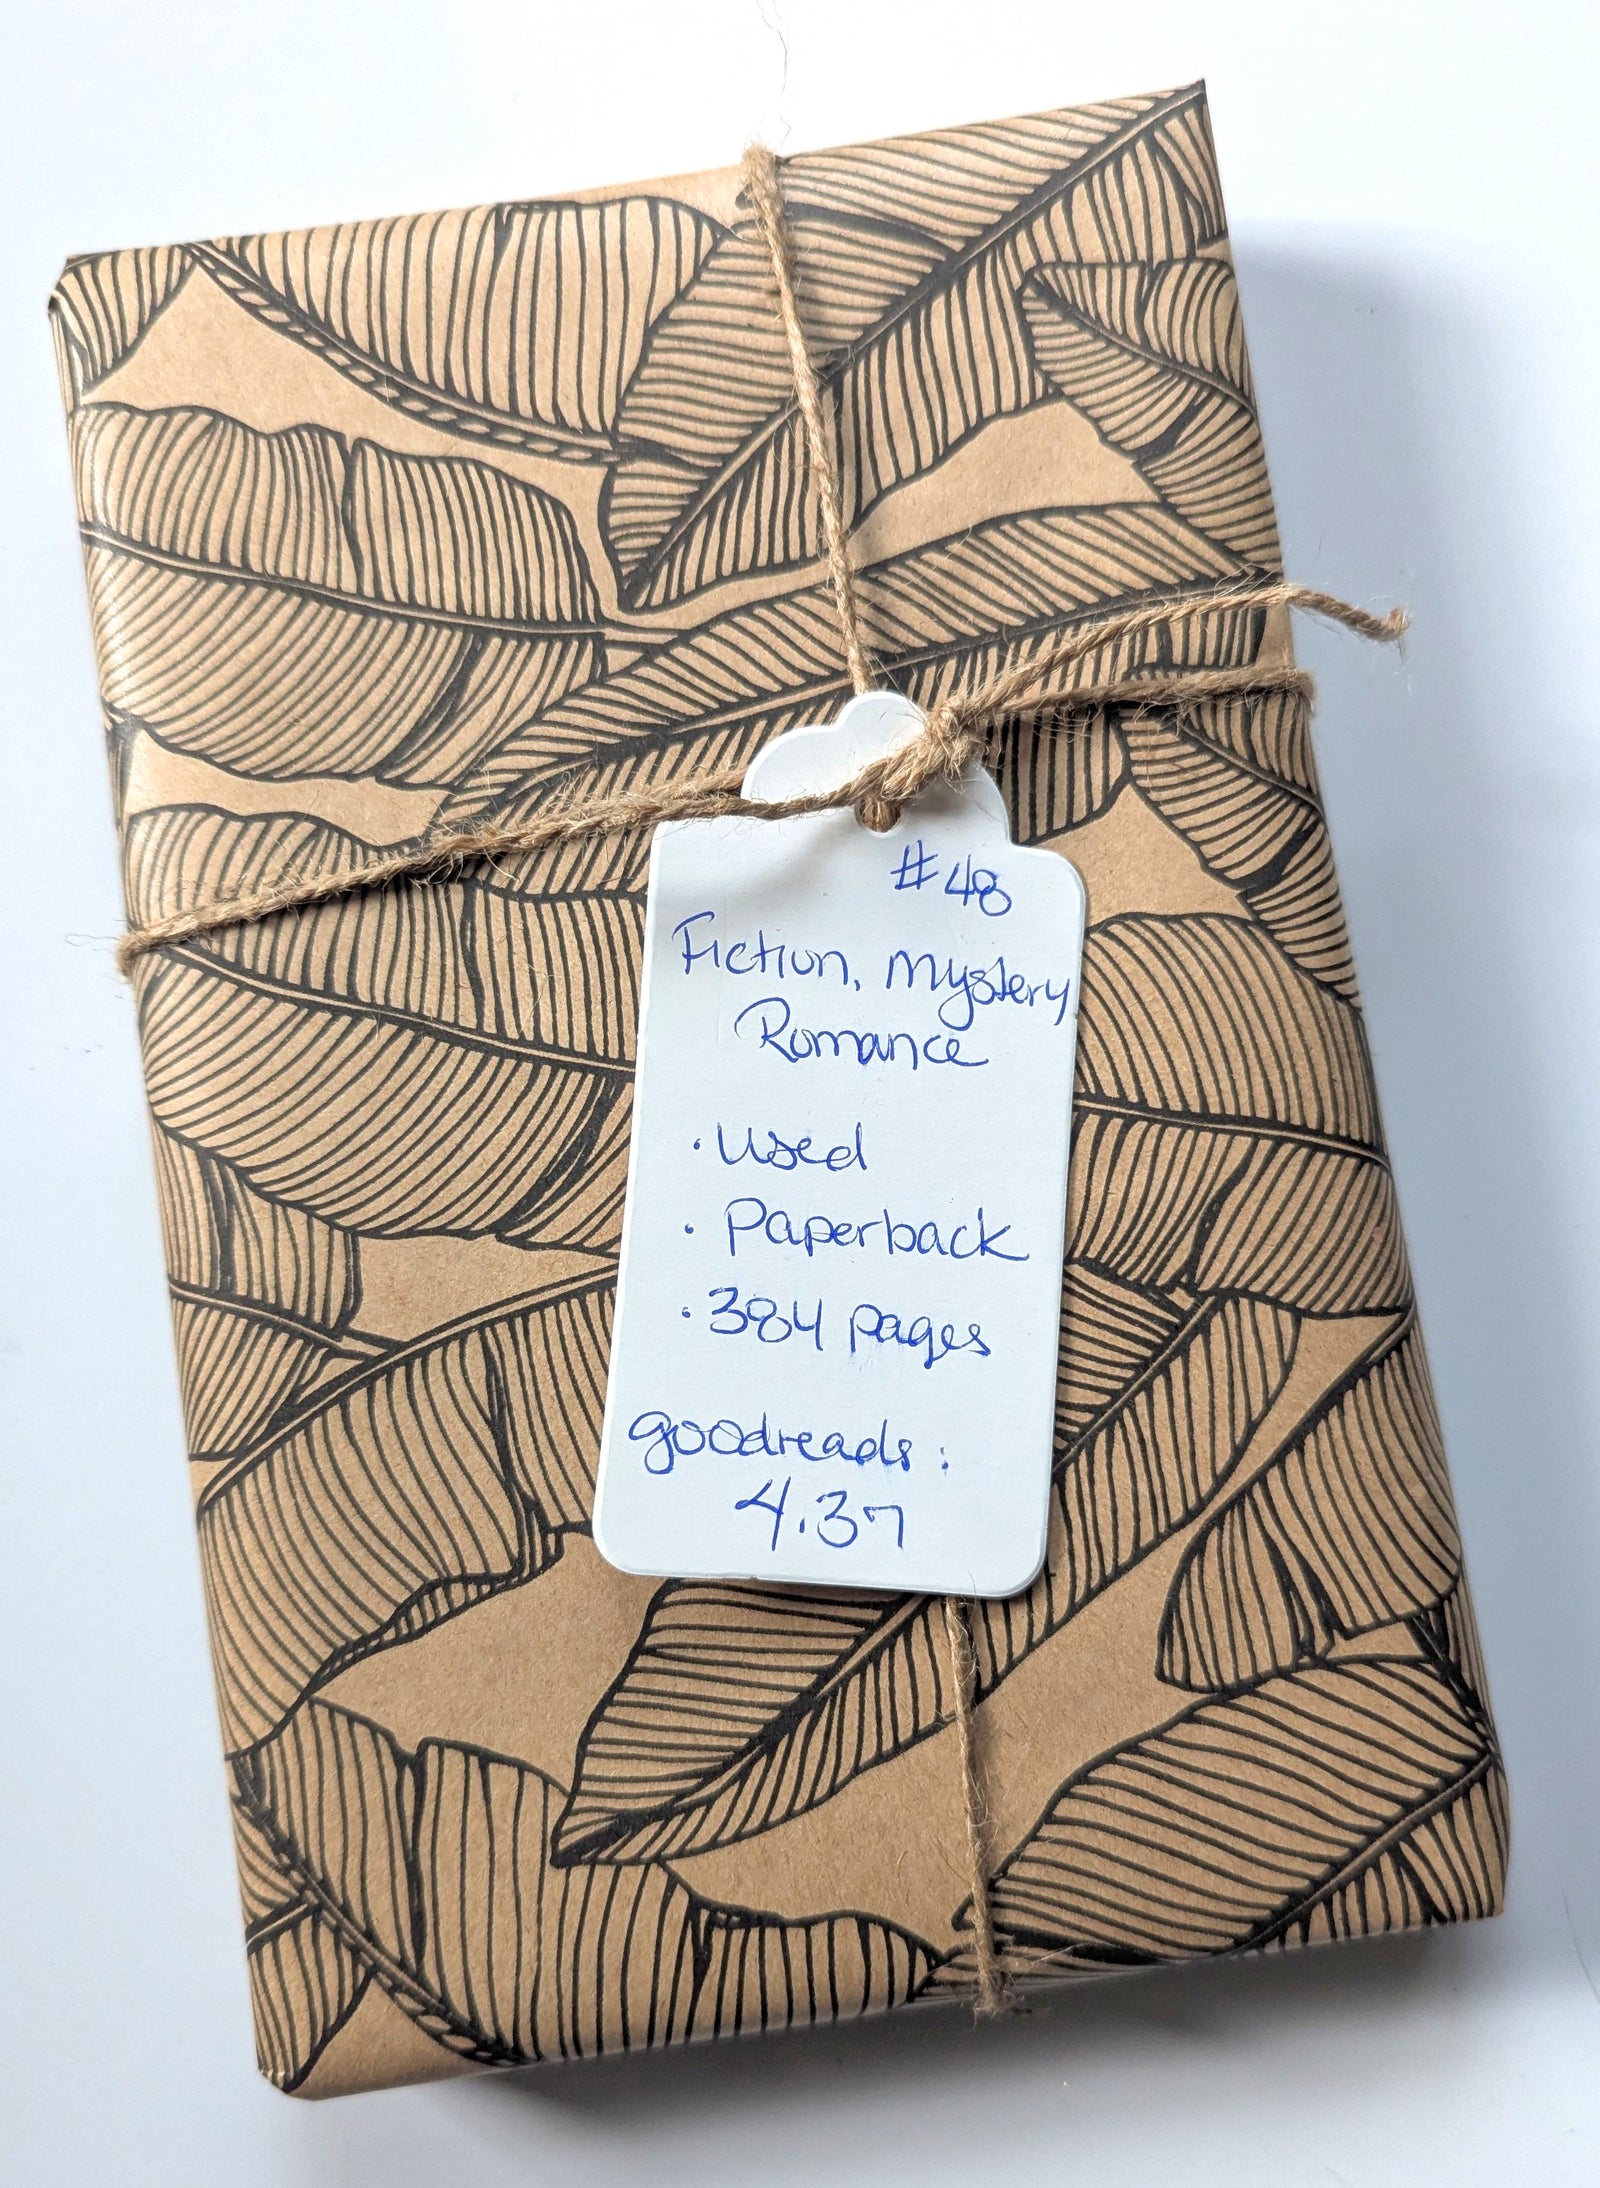 #48
Fiction, Mystery
Romance
· Used
· Paperback
· 384 pages
goodreads:
4.37